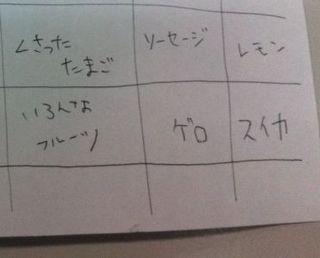 くさった ソーセージ レモン
たまご
いろんな ゲロ スイカ
フルーツ